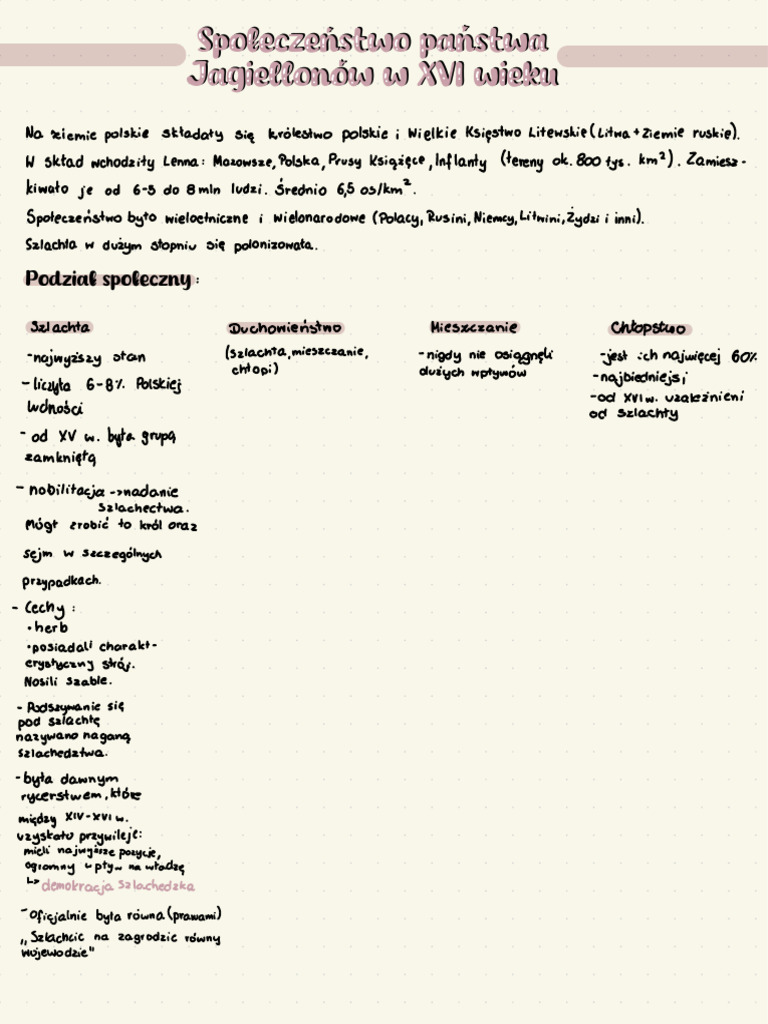 Społeczeństwo państwa
Jagiellonów w XVI wieku
Na ziemie polskie składały się królestwo polskie i Wielkie Księstwo Litewskie (Litwa + Ziemie ruskie).
W skład wchodziły Lenna: Mazowsze, Polska, Prusy Książęce, Inflanty (tereny ok. 800 tys. km²). Zamiesz-
kiwało je od 6-5 do 8 mln ludzi. Średnio 6,5 os/km².
Społeczeństwo było wieloetniczne i wielonarodowe (Polacy, Rusini, Niemcy, Litwini, Żydzi i inni).
Szlachta w dużym stopniu się polonizowała.
Podział społeczny:
Szlachta
-najwyższy stan
- liczyła 6-8% Polskiej
ludności
- od XV w. była grupą
zamkniętą
- nobilitacja -> nadanie
szlachectwa.
Mógł zrobić to król oraz
sejm w szczególnych
przypadkach.
- Cechy :
• herb
• posiadali charakt-
erystyczny strój.
Nosili szable.
- Podszywanie się
pod szlachtę
nazywano naganą
szlachedztwa.
- była dawnym
rycerstwem, które
między XIV-XVI w.
uzyskało przywileje:
mieli najwyższe pozycje,
ogromny wpływ na władzę
↳ demokracja szlachedzka
- Oficjalnie była równa (prawami)
„Szlachcic na zagrodzie równy
wojewodzie"
Duchowieństwo
(szlachta, mieszczanie,
chłopi)
Mieszczanie
- nigdy nie osiągnęli
dużych wpływów
Chłopstwo
-jest ich najwięcej 60%
-najbiedniejsi
-od XVI w. uzależnieni
od szlachty